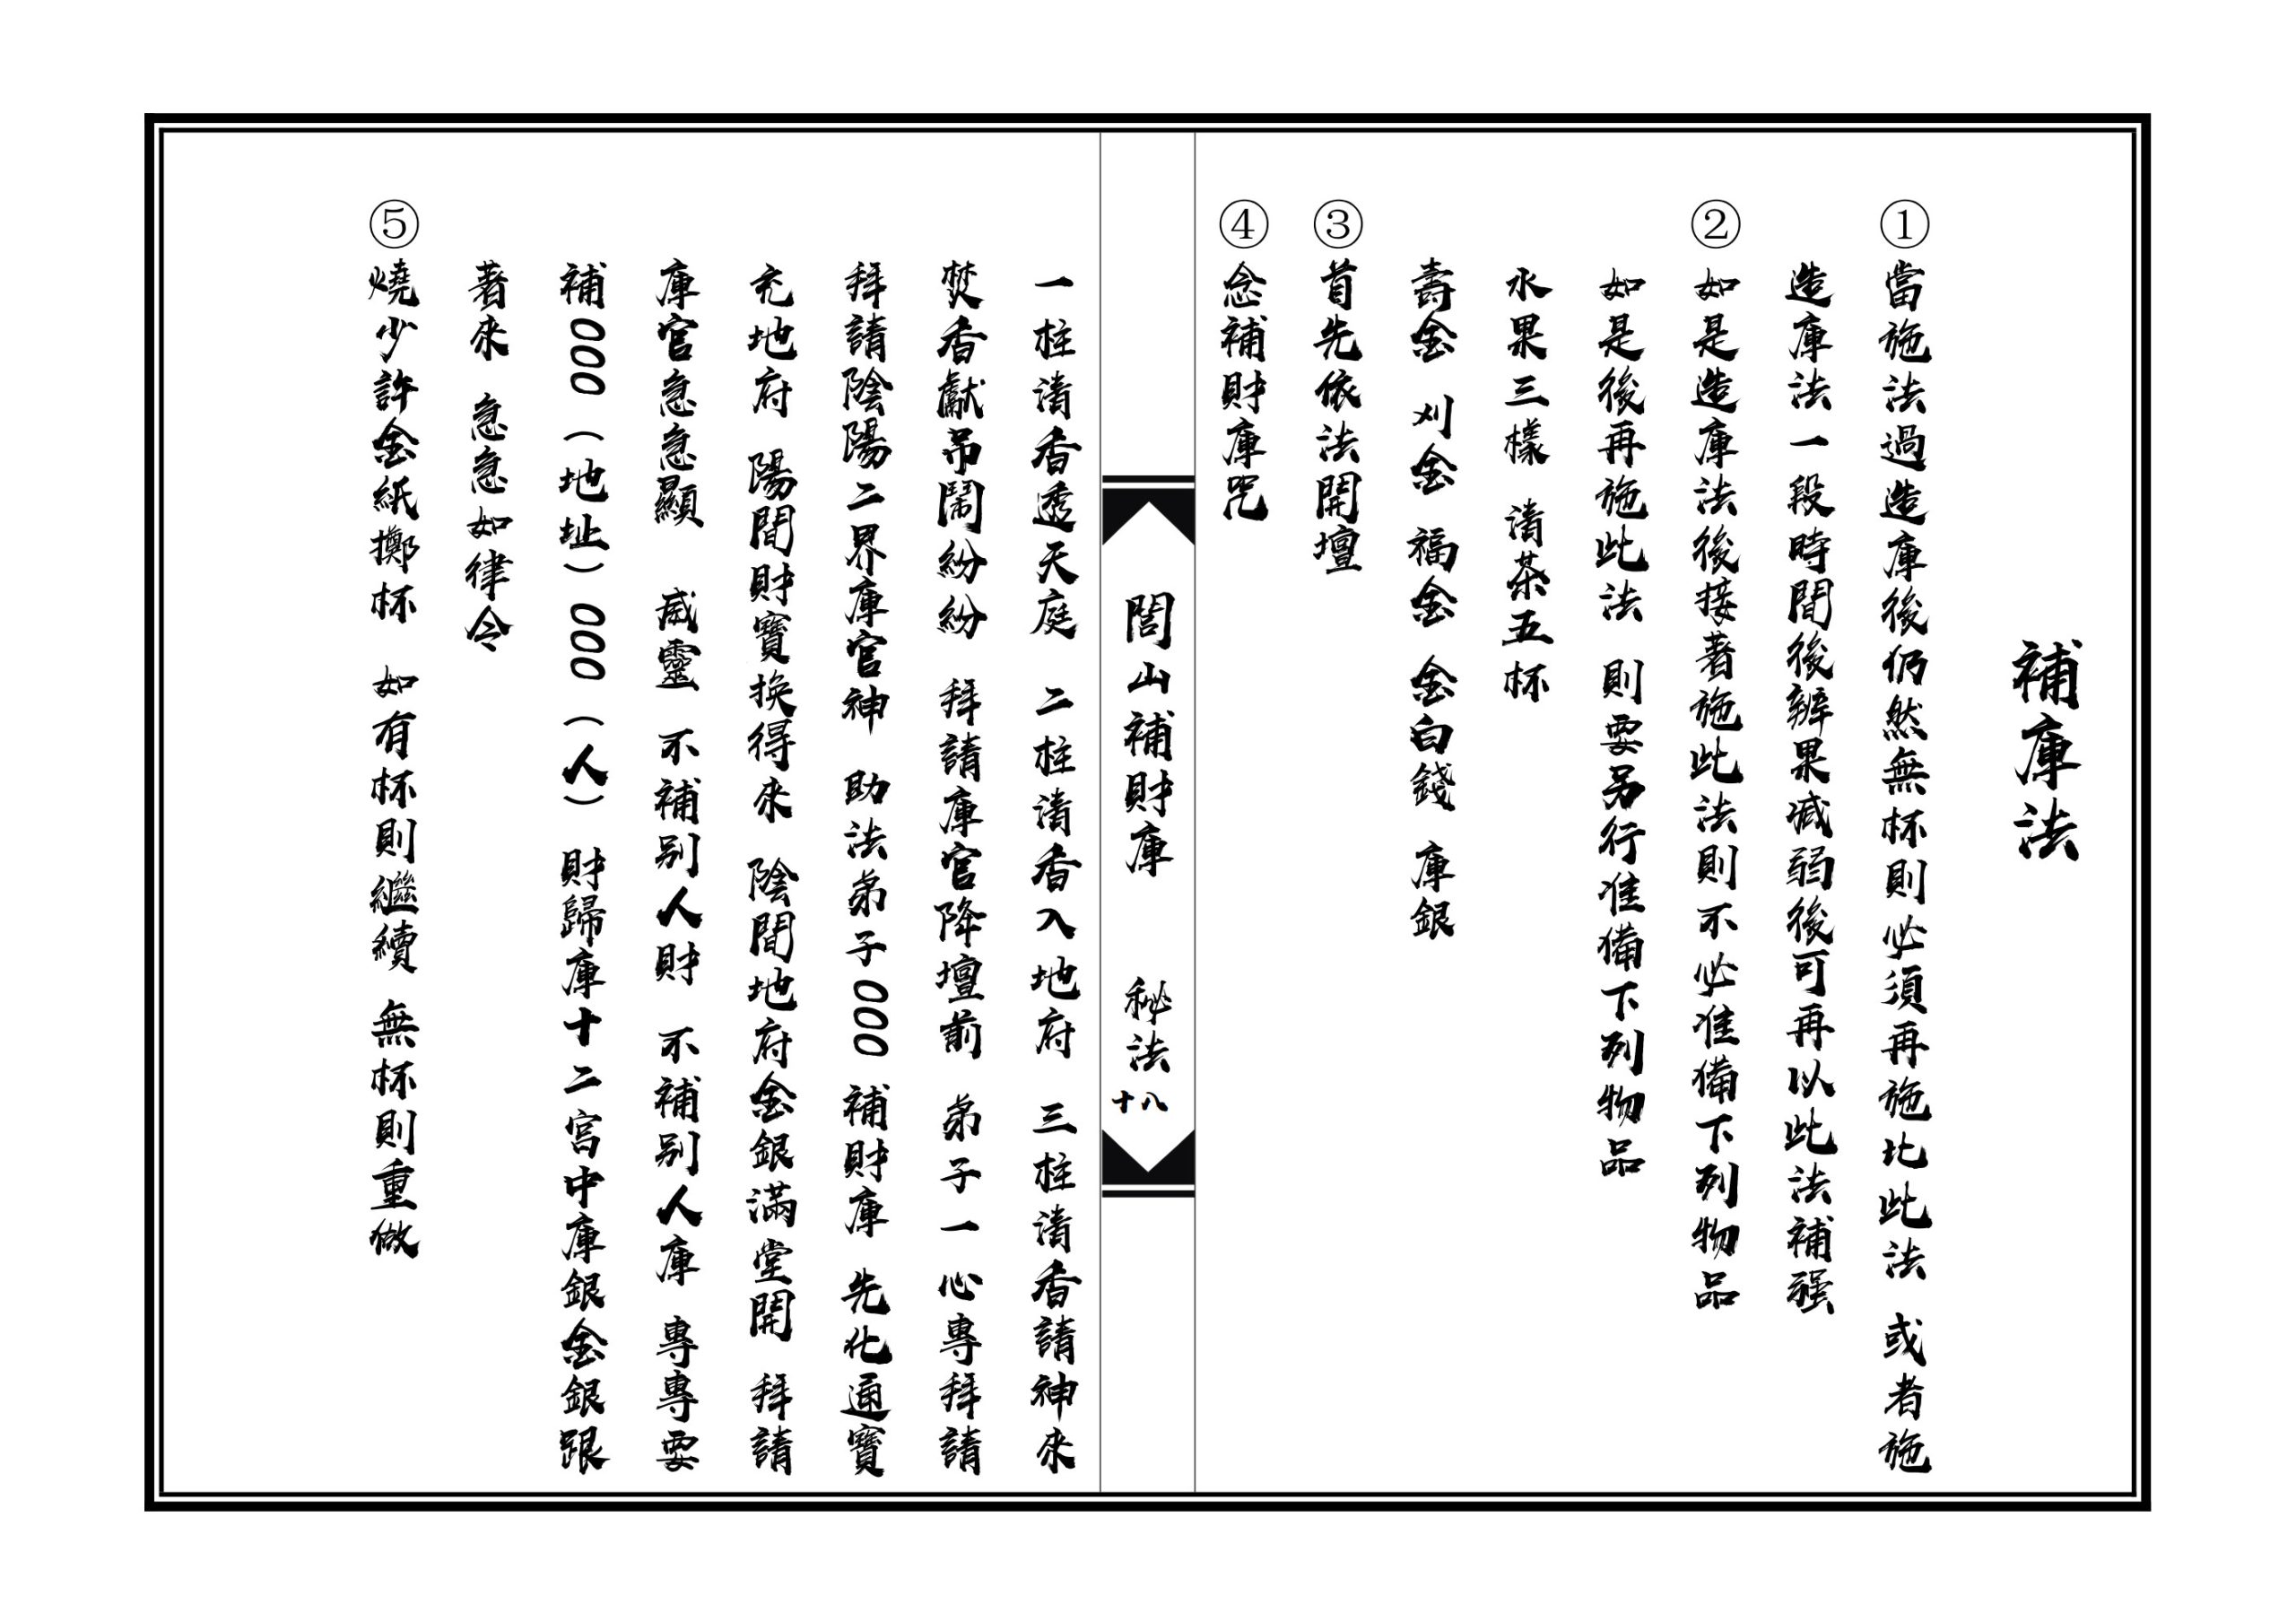 補庫法
①當施法過造庫後仍然無杯則必須再施比此法 或者施
造庫法一段時間後辦果减弱後可再以此法補强
②如是造庫法後接著施此法則不必准備下列物品
如是後再施此法 則要另行准備下列物品
水果三樣 清茶五杯
壽金 刈金 福金 金白錢 庫銀
③首先依法開壇
④念補財庫咒
閭山補財庫 秘法
十八
一柱清香透天庭 二柱清香入地府 三柱清香請神來
焚香獻帛鬧紛紛 拜請庫官降壇前 弟子一心專拜請
拜請陰陽二界庫官神 助法弟子000補財庫 先化通寶
充地府 陽間財寶換得來 陰間地府金銀滿堂開 拜請
庫官急急顯 威靈 不補别人財 不補别人庫 專專要
補000（地址）000（人）財歸庫十二宮中庫銀金銀跟
著來 急急如律令
⑤燒少許金紙擲杯 如有杯則繼續 無杯則重做